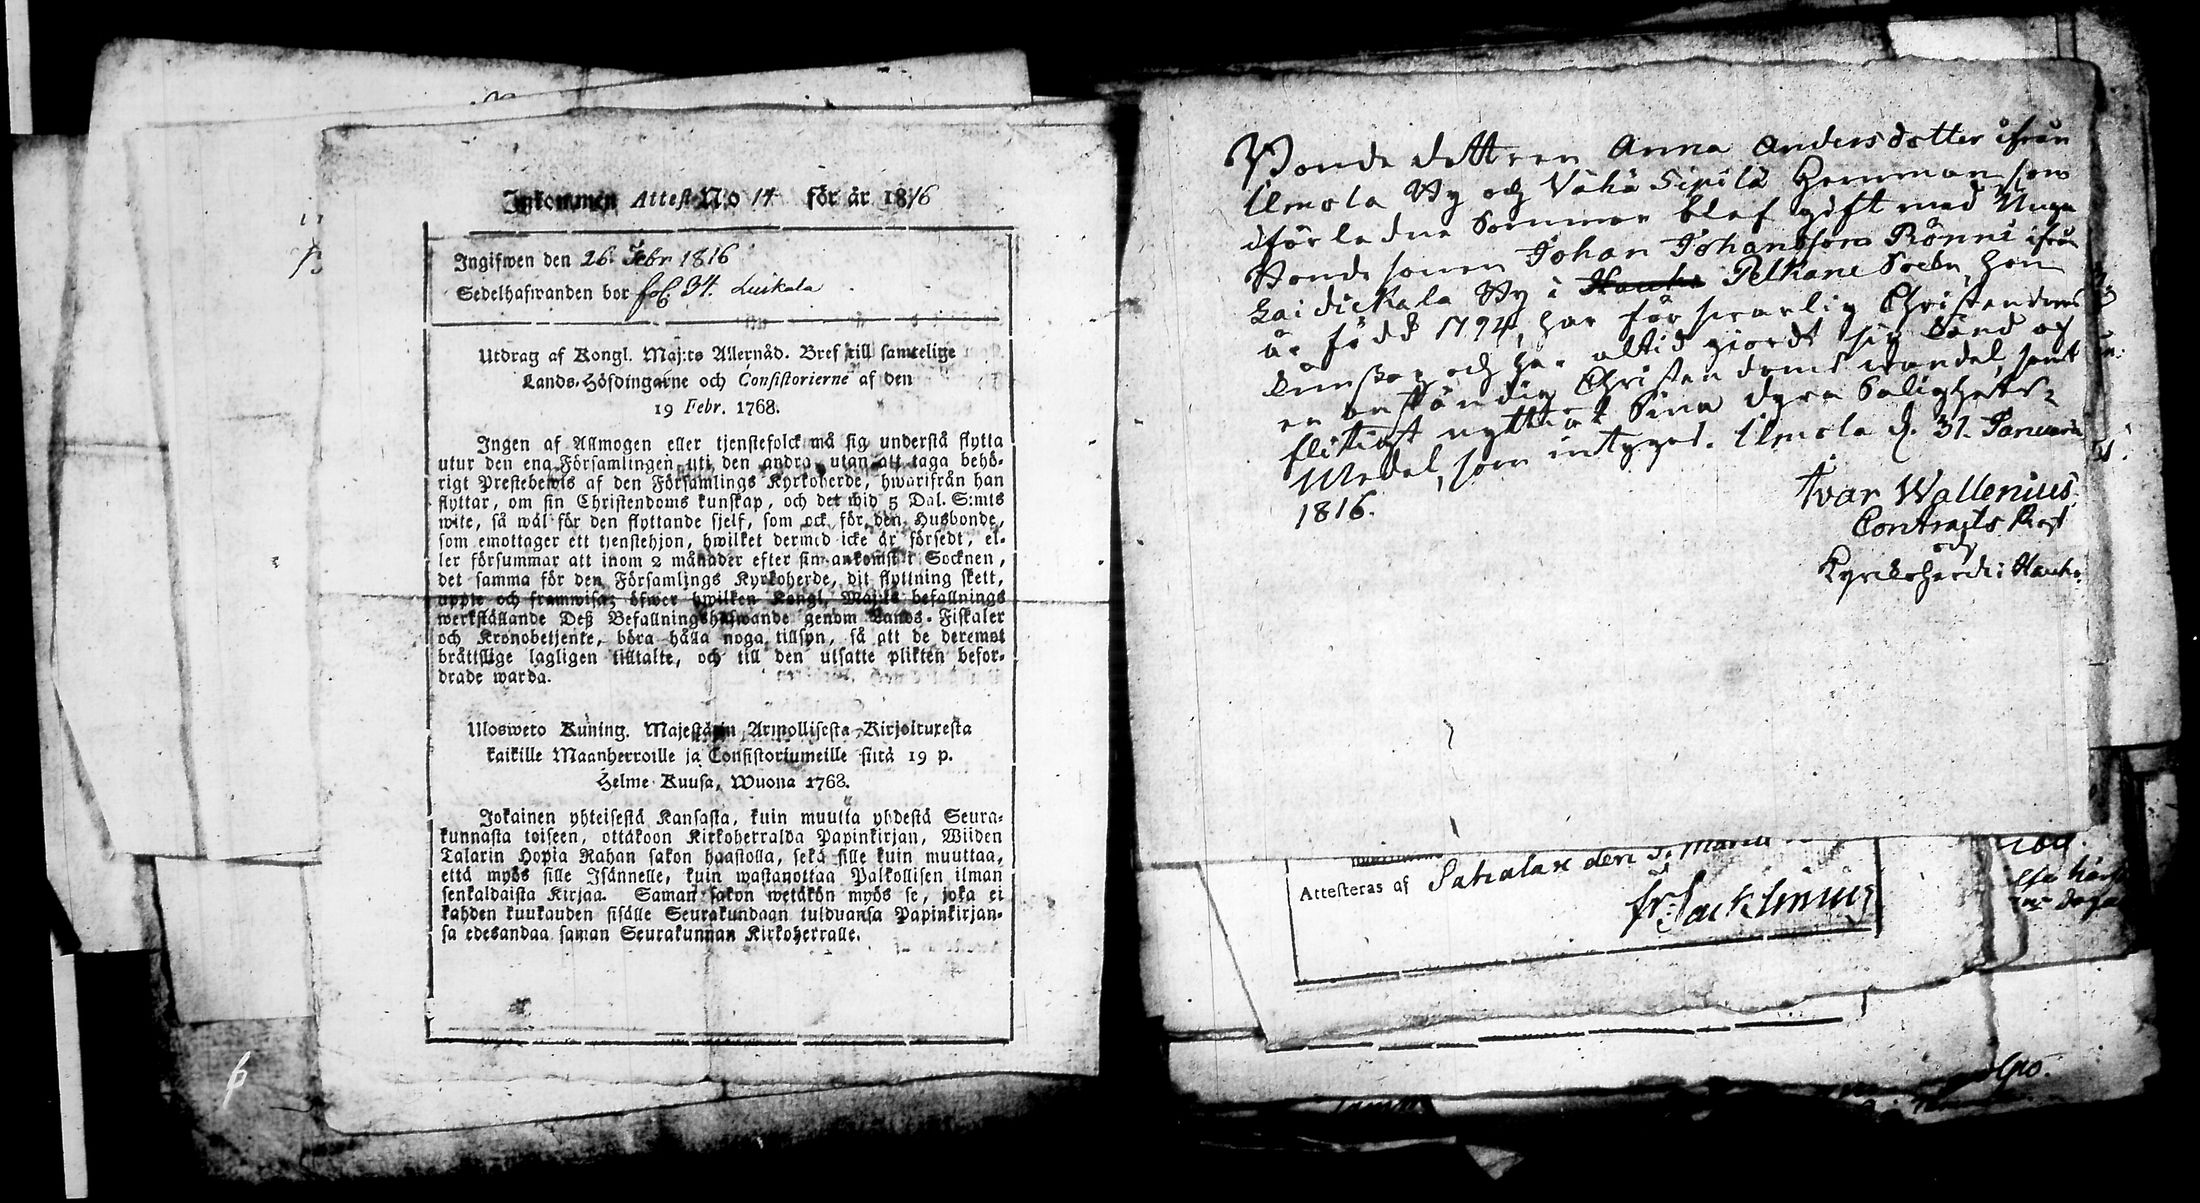 Inkommen Attest No 14 för år 1816
Ingifwen den 26. Febr 1816
Sedelhafwanden bor fol. 34. Luikala
Utdrag af Kongl. Maj:ts Allernåd. Bref till samtelige
Lands-Höfdingarne och Consistorierne af den
19 Febr. 1768.
Ingen af Allmogen eller tjenstefolck må sig understå flytta
utur den ena Församlingen uti den andra, utan att taga behö-
rigt Prestebewis af den Församlings Kyrkoherde, hwarifrån han
flyttar, om sin Christendoms kunskap, och det wid 5 Dal. S:mts
wite, så wäl för den flyttande sjelf, som ock för den Husbonde,
som emottager ett tjenstehjon, hwilket dermed icke är försedt, el-
ler försummar att inom 2 månader efter sin ankomst i Socknen,
det samma för den Församlings Kyrkoherde, dit flyttning skett,
uppte och framwisa; öfwer hwilken Kongl. Maj:ts befallnings
werkställande Deß Befallningshafwande genom Lands-Fiskaler
och Kronobetjente, böra hålla noga tillsyn, så att de deremot
bråttslige lagligen tilltalte, och till den utsatte plikten befor-
drade warda.
Ulosweto Kuning. Majestätin Armollisesta Kirjoituxesta
kaikille Maanherroille ja Consistoriumeille siitä 19 p.
Helme Kuusa, Wuona 1768.
Jokainen yhteisestä Kansasta, kuin muutta yhdestä Seura-
kunnasta toiseen, ottakoon Kirkoherralda Papinkirjan, Wiiden
Talarin Hopia Rahan sakon haastolla, sekä sille kuin muuttaa,
että myös sille Isännelle, kuin wastanottaa Palkollisen ilman
senkaldaista Kirjaa. Saman sakon wetäkön myös se, joka ei
kahden kuukauden sisälle Seurakundaan tulduansa Papinkirjan-
sa edesandaa saman Seurakunnan Kirkoherralle.
Bonde dottren Anna Andersdotter ifrån
Ilmola By och Vähä Sipilä Hemman som
iförledne Sommar blef gift med Unga
Bonde sonen Johan Johansson Rönni ifrån
Laidickala By i Hauho Pelkäne Sockn, hon
är född 1794, har försvarlig Christendoms
kunskap och har altid giordt sig känd af
en anständig Christendoms wandel, samt
flitigt nyttiat Sina dyra Salighets
Medel, som intygas. Ilmola d. 31. Januarii
1816.
Ivar Wallenius
Contracts Prost
och
Kyrckoherde i Hauho.
Attesteras af Sahalax den
Fr. Jacklinius